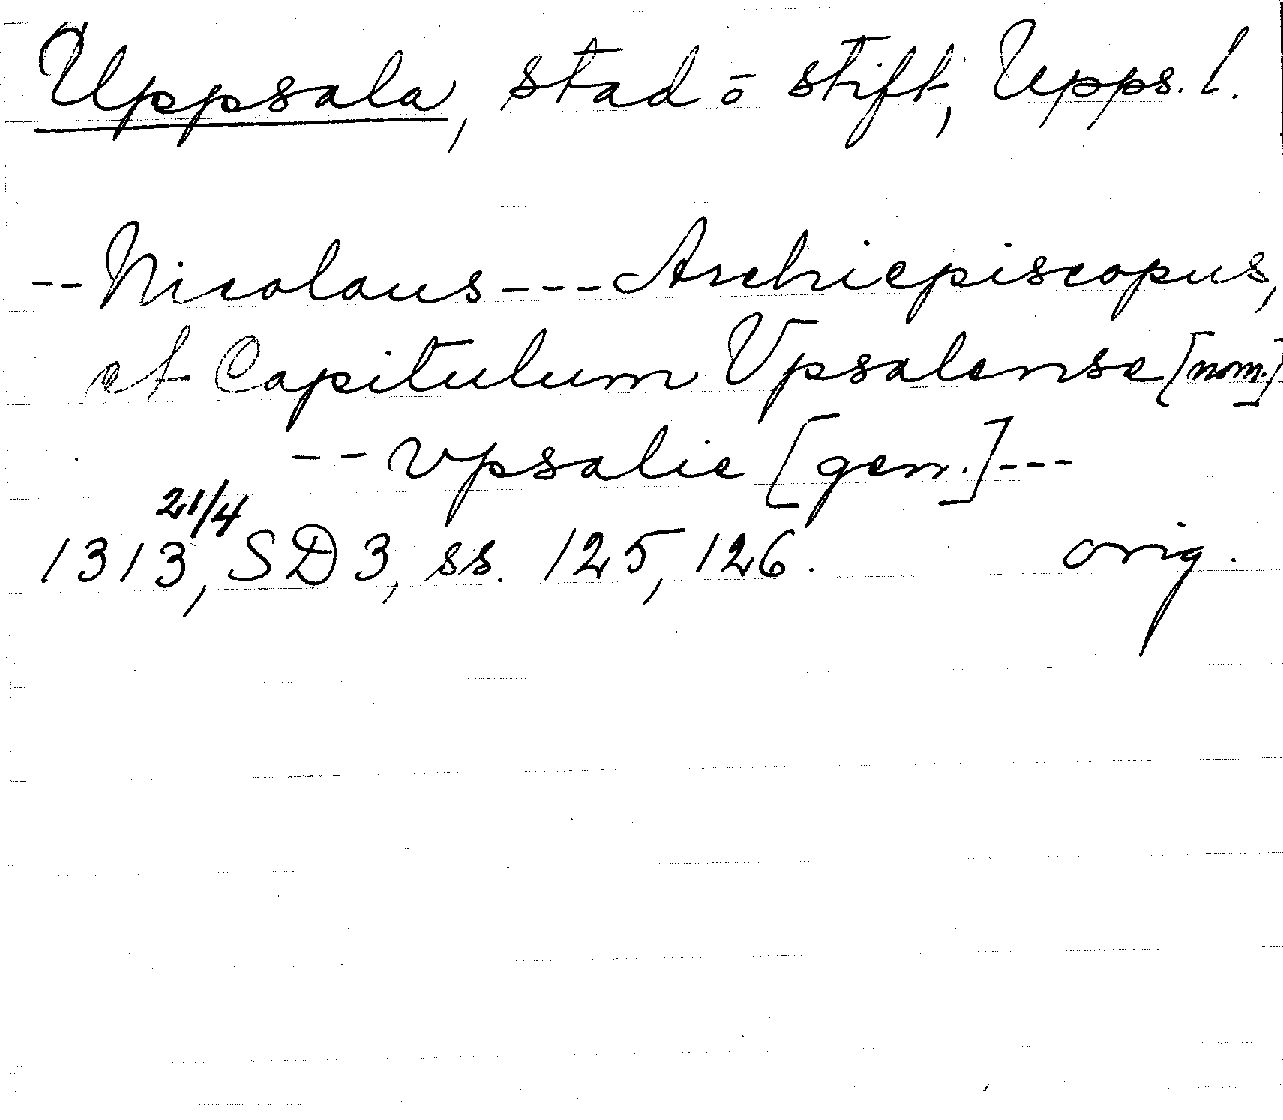 Uppsala, stad o stift, Upps. l.
-- Nicolaus --- Archiepiscopus,
et Capitulum Vpsalense [nom.]
-- vpsalie [gen.] ---
1313 21/4, SD 3, ss. 125, 126. orig.